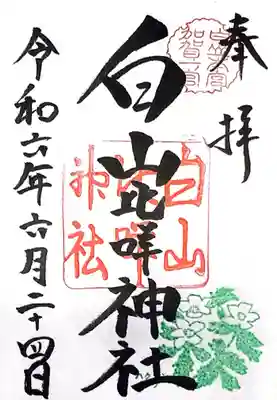 奉拝
白山比咩神社
令和六年六月二十四日
白山比咩神社